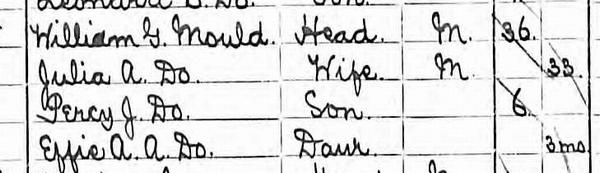 William G. Mould. Head. M. 36.
Julia A. Do. Wife. M. 33.
Percy J. Do. Son. 6.
Effie A. A. Do. Daur. 3 mo.